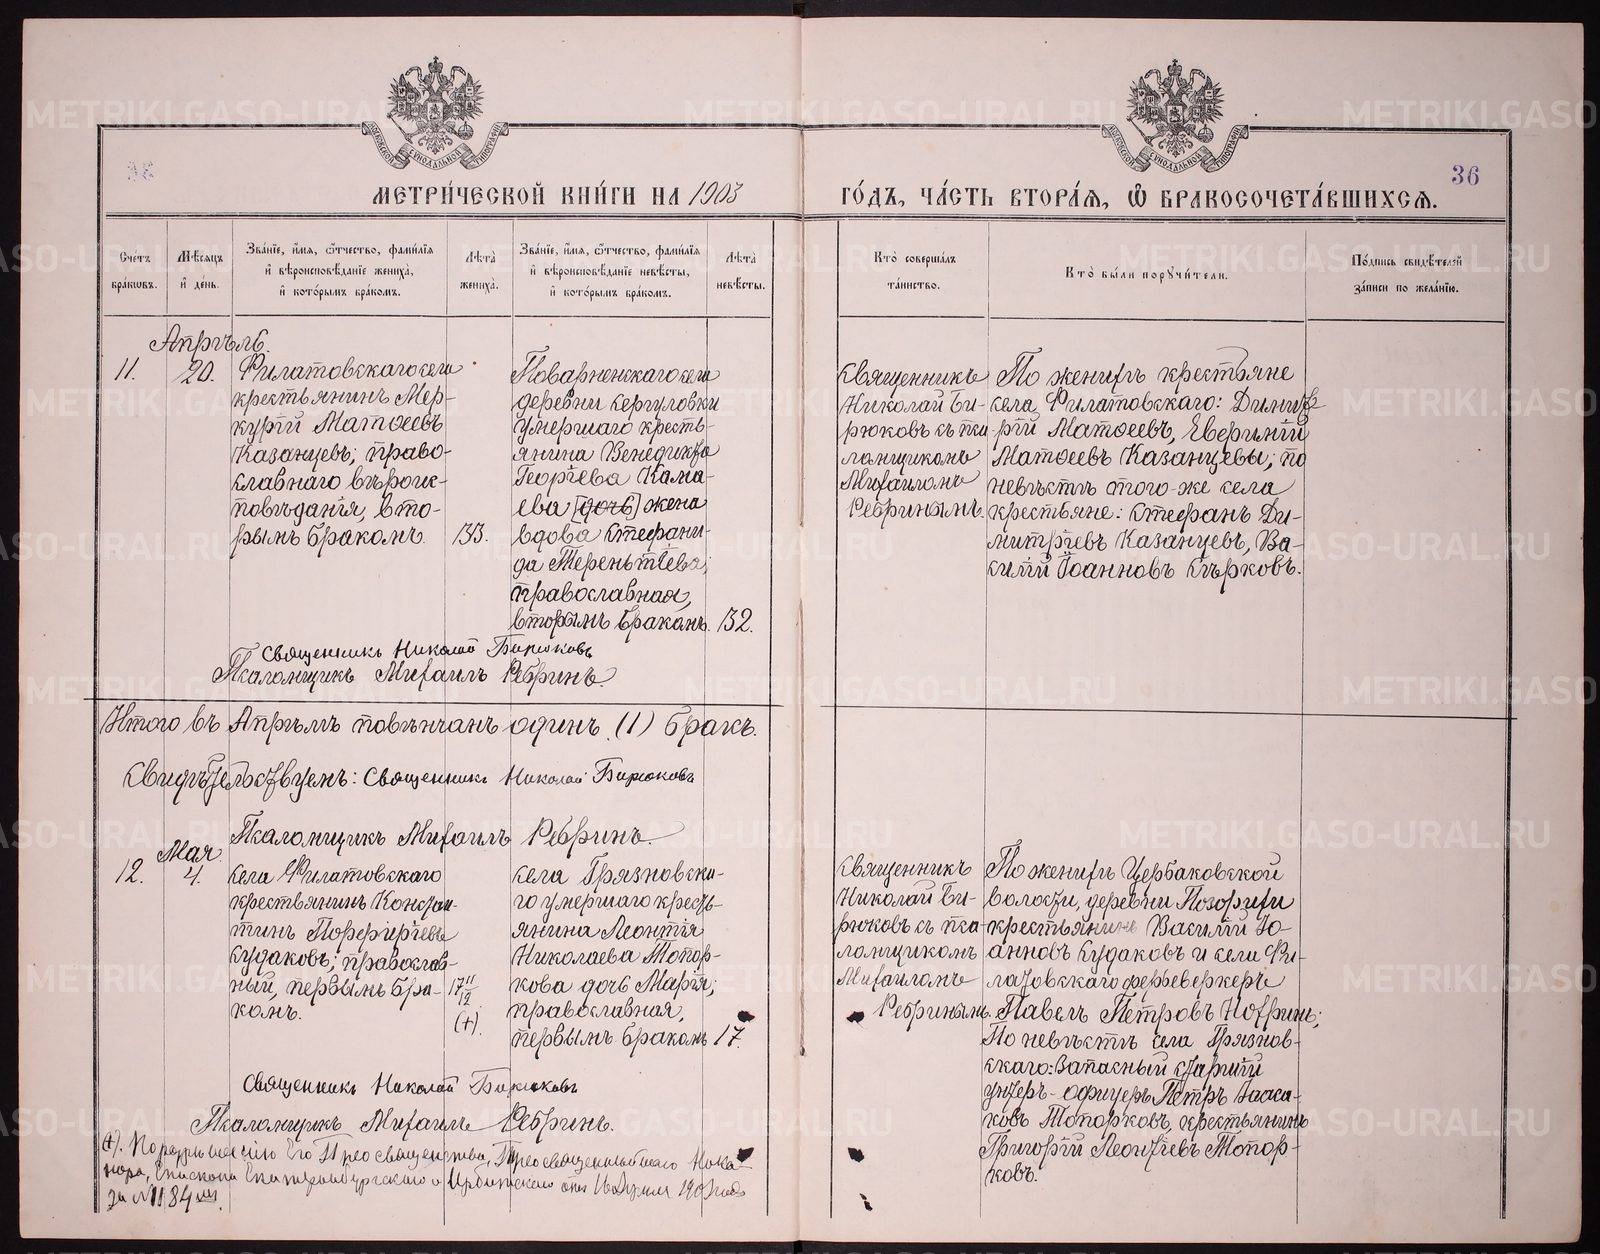 МЕТРИ́ЧЕСКОЙ КНИ́ГИ НА 1903
ГО́ДЪ, ЧА́СТЬ ВТОРА́Я, Ѿ БРАКОСОЧЕТА́ВШИХСЯ.
36
Сче́тъ бра́кωвъ.
Мѣ́сяцъ и҆ де́нь.
Зва́нїе, и҆́мя, ѻ҆́тчество, фами́лїя и҆ вѣроисповѣ́данїе жениха̀, и҆ кото́рымъ бра́комъ.
Лѣ́та жениха̀.
Зва́нїе, и҆́мя, ѻ҆́тчество, фами́лїя и҆ вѣроисповѣ́данїе невѣ́сты, и҆ кото́рымъ бра́комъ.
Лѣ́та невѣ́сты.
Кто̀ соверша́лъ та́инство.
Кто̀ бы́ли порꙋчи́тели.
По́дпись свидѣ́телей за́писи по жела́нїю.
Апрѣль.
11.
20.
Филатовскаго села
крестьянинъ Мер-
курій Матѳеевъ
Казанцевъ; право-
славнаго вѣроис-
повѣданія, вто-
рымъ бракомъ.
33.
Поварненскаго села
деревни Сергуловки
умершаго кресть-
янина Венедикта
Георгіева Кама-
ева [дочь] жена
вдова Стефани-
да Терентіева;
православная,
вторымъ бракомъ.
32.
Священникъ
Николай Би-
рюковъ съ пса-
ломщикомъ
Михаиломъ
Ребринымъ.
По женихѣ крестьяне
села Филатовскаго: Димит-
рій Матѳеевъ, Еверимій
Матѳеевъ Казанцевы; по
невѣстѣ того-же села
крестьяне: Стефанъ Ди-
митріевъ Казанцевъ, Ва-
силій Іоанновъ Сѣрковъ.
Священникъ Николай Бирюковъ
Псаломщикъ Михаилъ Ребринъ.
Итого въ Апрѣлѣ повѣнчанъ одинъ (1) бракъ.
Свидѣтельствуемъ: Священникъ Николай Бирюковъ
Псаломщикъ Михаилъ Ребринъ.
Мая
12.
4.
села Филатовскаго
крестьянинъ Констан-
тинъ Порфиріевъ
Кудаковъ; православ-
ный, первымъ бра-
комъ.
17 11/12
(+).
села Грязновска-
го умершаго кресть-
янина Леонтія
Николаева Топор-
кова дочь Марія;
православная,
первымъ бракомъ
17.
Священникъ
Николай Би-
рюковъ съ пса-
ломщикомъ
Михаиломъ
Ребринымъ.
По женихѣ Щербаковской
волости, деревни Позорихи
крестьянинъ Василій Іо-
анновъ Кудаковъ и села Фи-
латовскаго фейерверкеръ
Павелъ Петровъ Нохринъ;
По невѣстѣ села Грязнов-
скаго: Запасный старшій
унтеръ-офицеръ Петръ Исаа-
ковъ Топорковъ, крестьянинъ
Григорій Леонтіевъ Топор-
ковъ.
Священникъ Николай Бирюковъ
Псаломщикъ Михаилъ Ребринъ.
(+). По разрѣшенію Его Преосвященства, Преосвященнѣйшаго Никано-
нора, Епископа Екатеринбургскаго и Ирбитскаго отъ Апрѣля 1903 года
за № 1184
METRIKI.GASO-URAL.RU